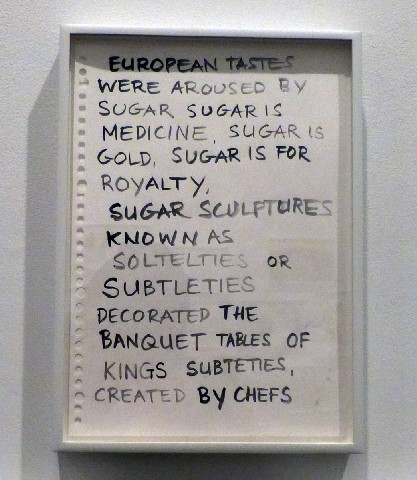 EUROPEAN TASTES
WERE AROUSED BY
SUGAR SUGAR IS
MEDICINE, SUGAR IS
GOLD, SUGAR IS FOR
ROYALTY,
SUGAR SCULPTURES
KNOWN AS
SOLTELTIES OR
SUBTLETIES
DECORATED THE
BANQUET TABLES OF
KINGS SUBTETIES,
CREATED BY CHEFS